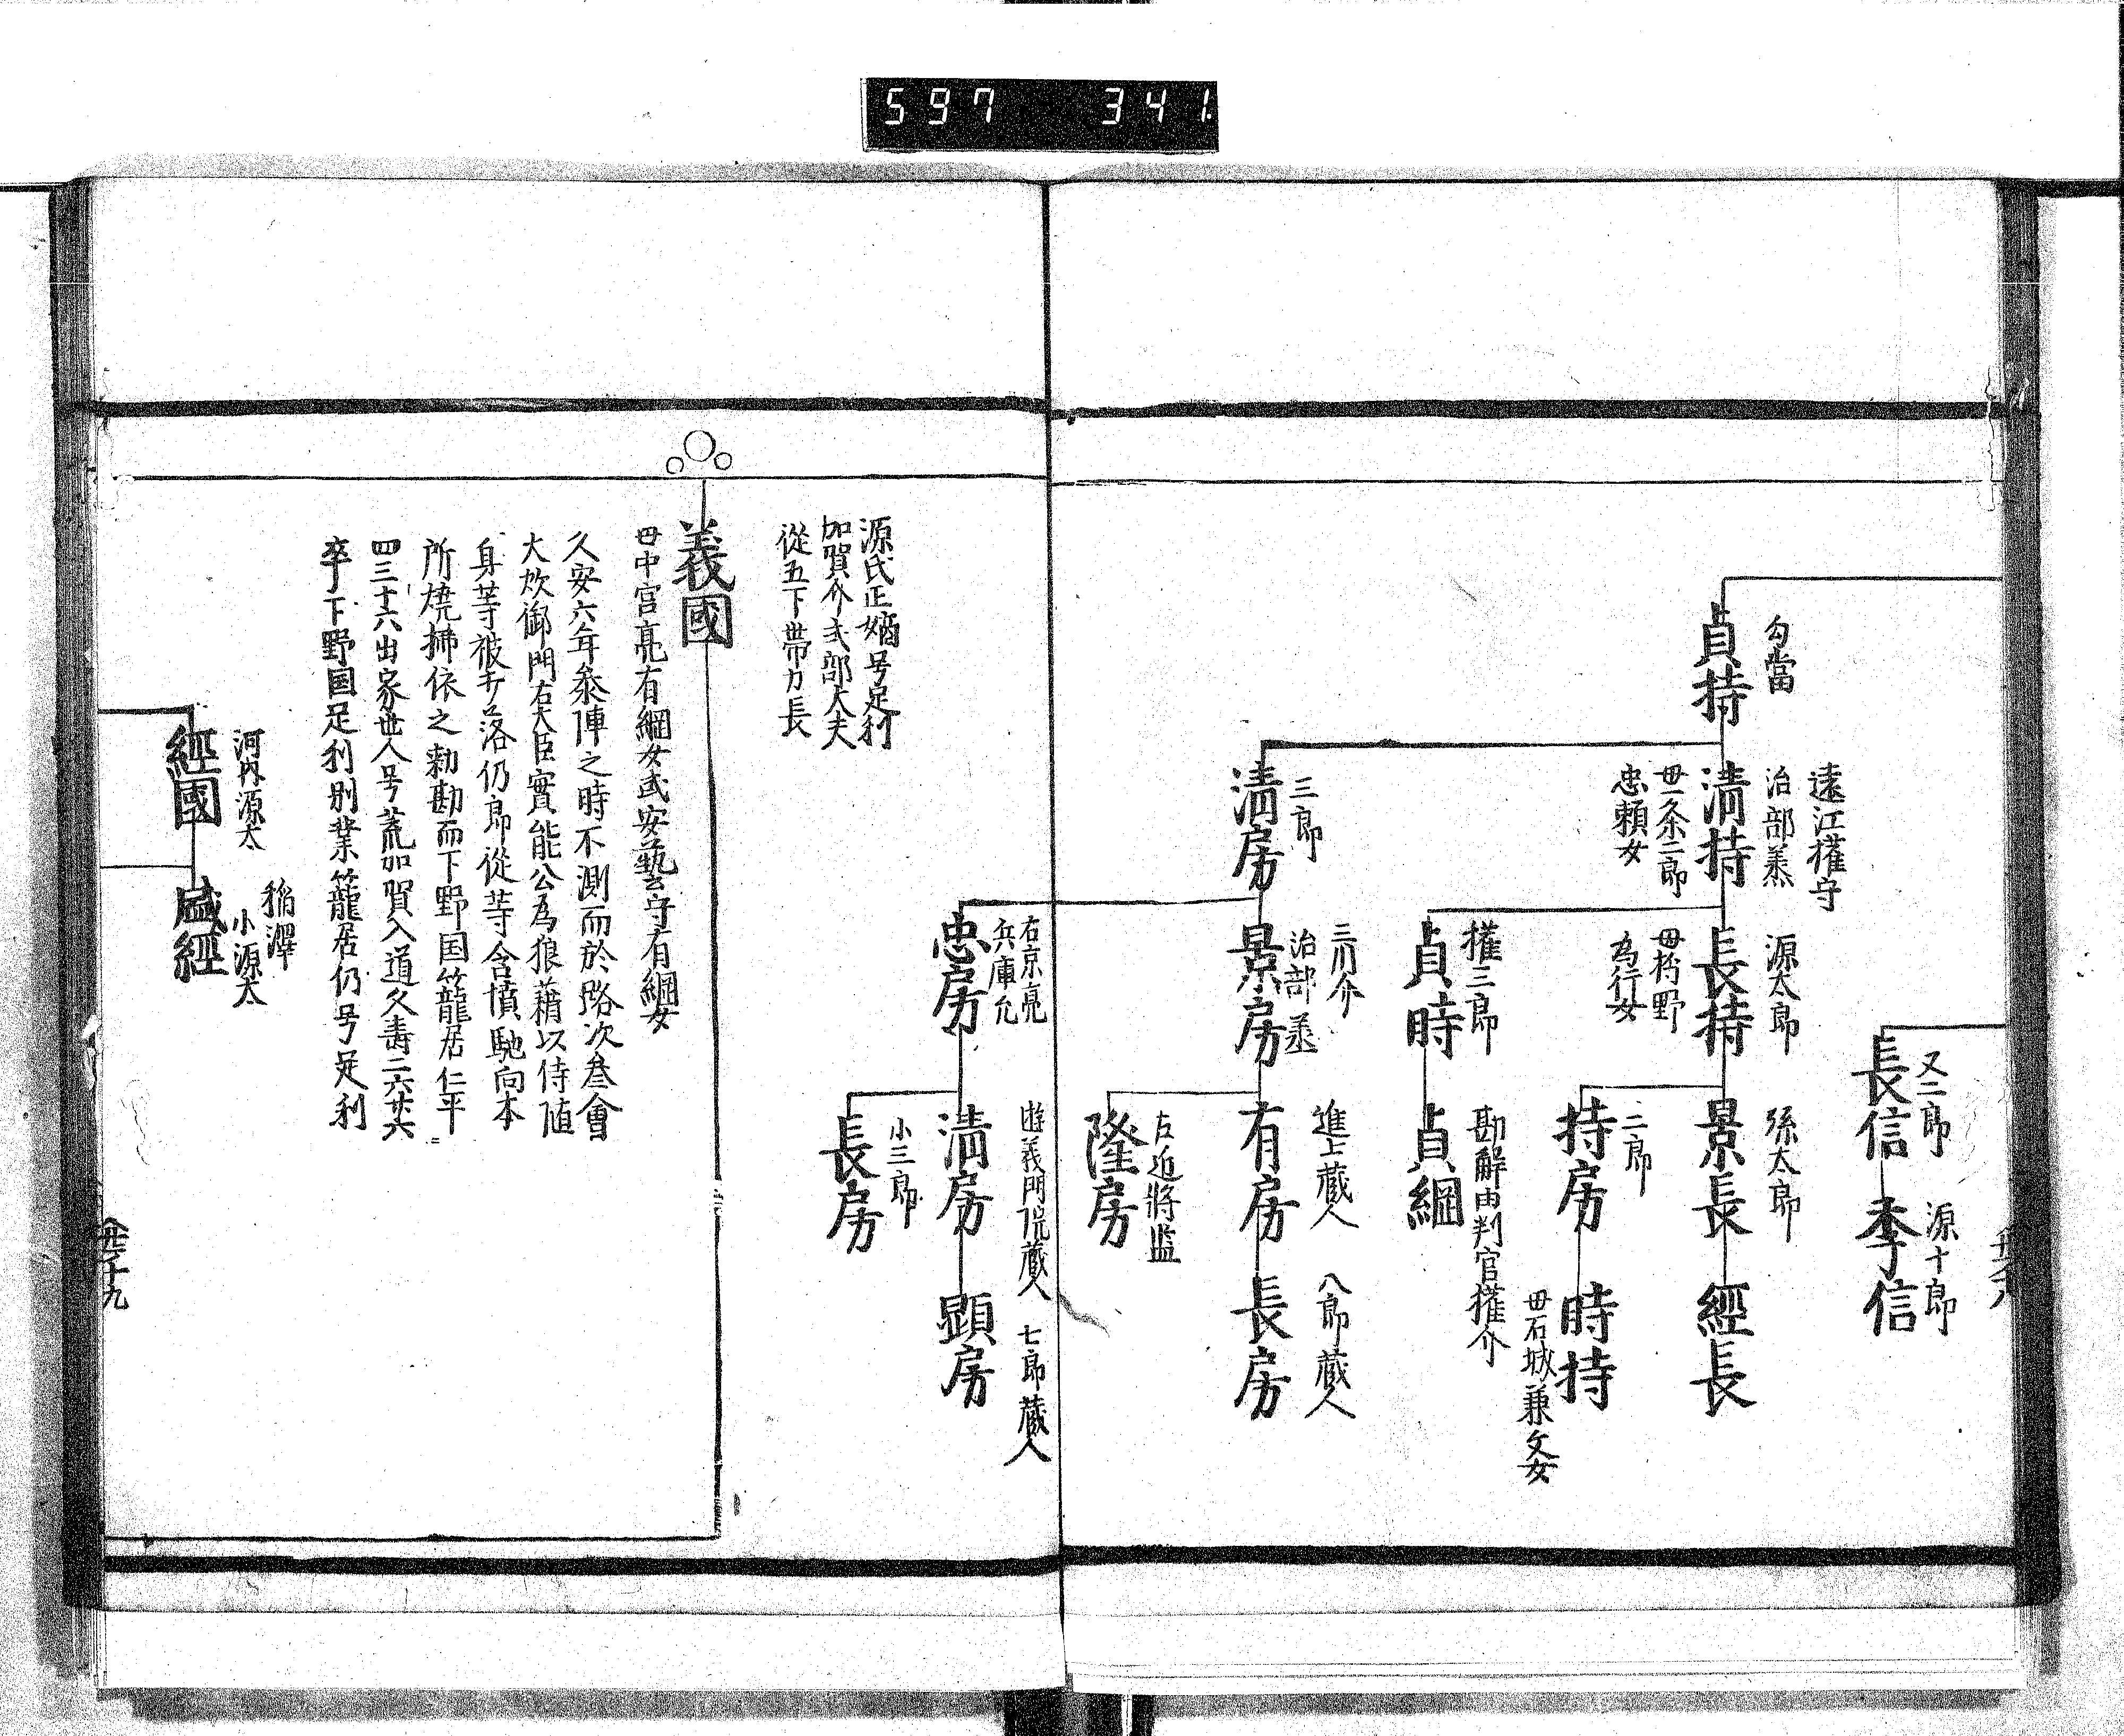 597 341
又二郎
長信
源十郎
季信
勾當
貞持
遠江権守
治部丞
清持
母一条二郎
忠頼女
源太郎
長持
母狩野
為行女
孫太郎
景長
經長
二郎
持房
時持
母石城兼文女
権三郎
貞時
勘解由判官権介
貞綱
三郎
清房
三川介
治部丞
景房
進士蔵人
有房
八郎蔵人
長房
左近將監
隆房
右京亮
兵庫允
忠房
遊義門院蔵人
清房
七郎蔵人
顕房
小三郎
長房
源氏正嫡号足利
加賀介式部大夫
從五下帯刀長
義國
母中宮亮有綱女或安藝守有綱女
久安六年参陣之時不測而於路次参會
大炊御門右大臣實能公為狼藉以侍随
身等被打落仍郎從等含憤馳向本
所焼拂依之勅勘而下野国籠居仁平
四三十六出家世人号荒加賀入道久壽二六廿六
卒于下野国足利別業籠居仍号足利
河内源太
經國
稲澤
小源太
盛經